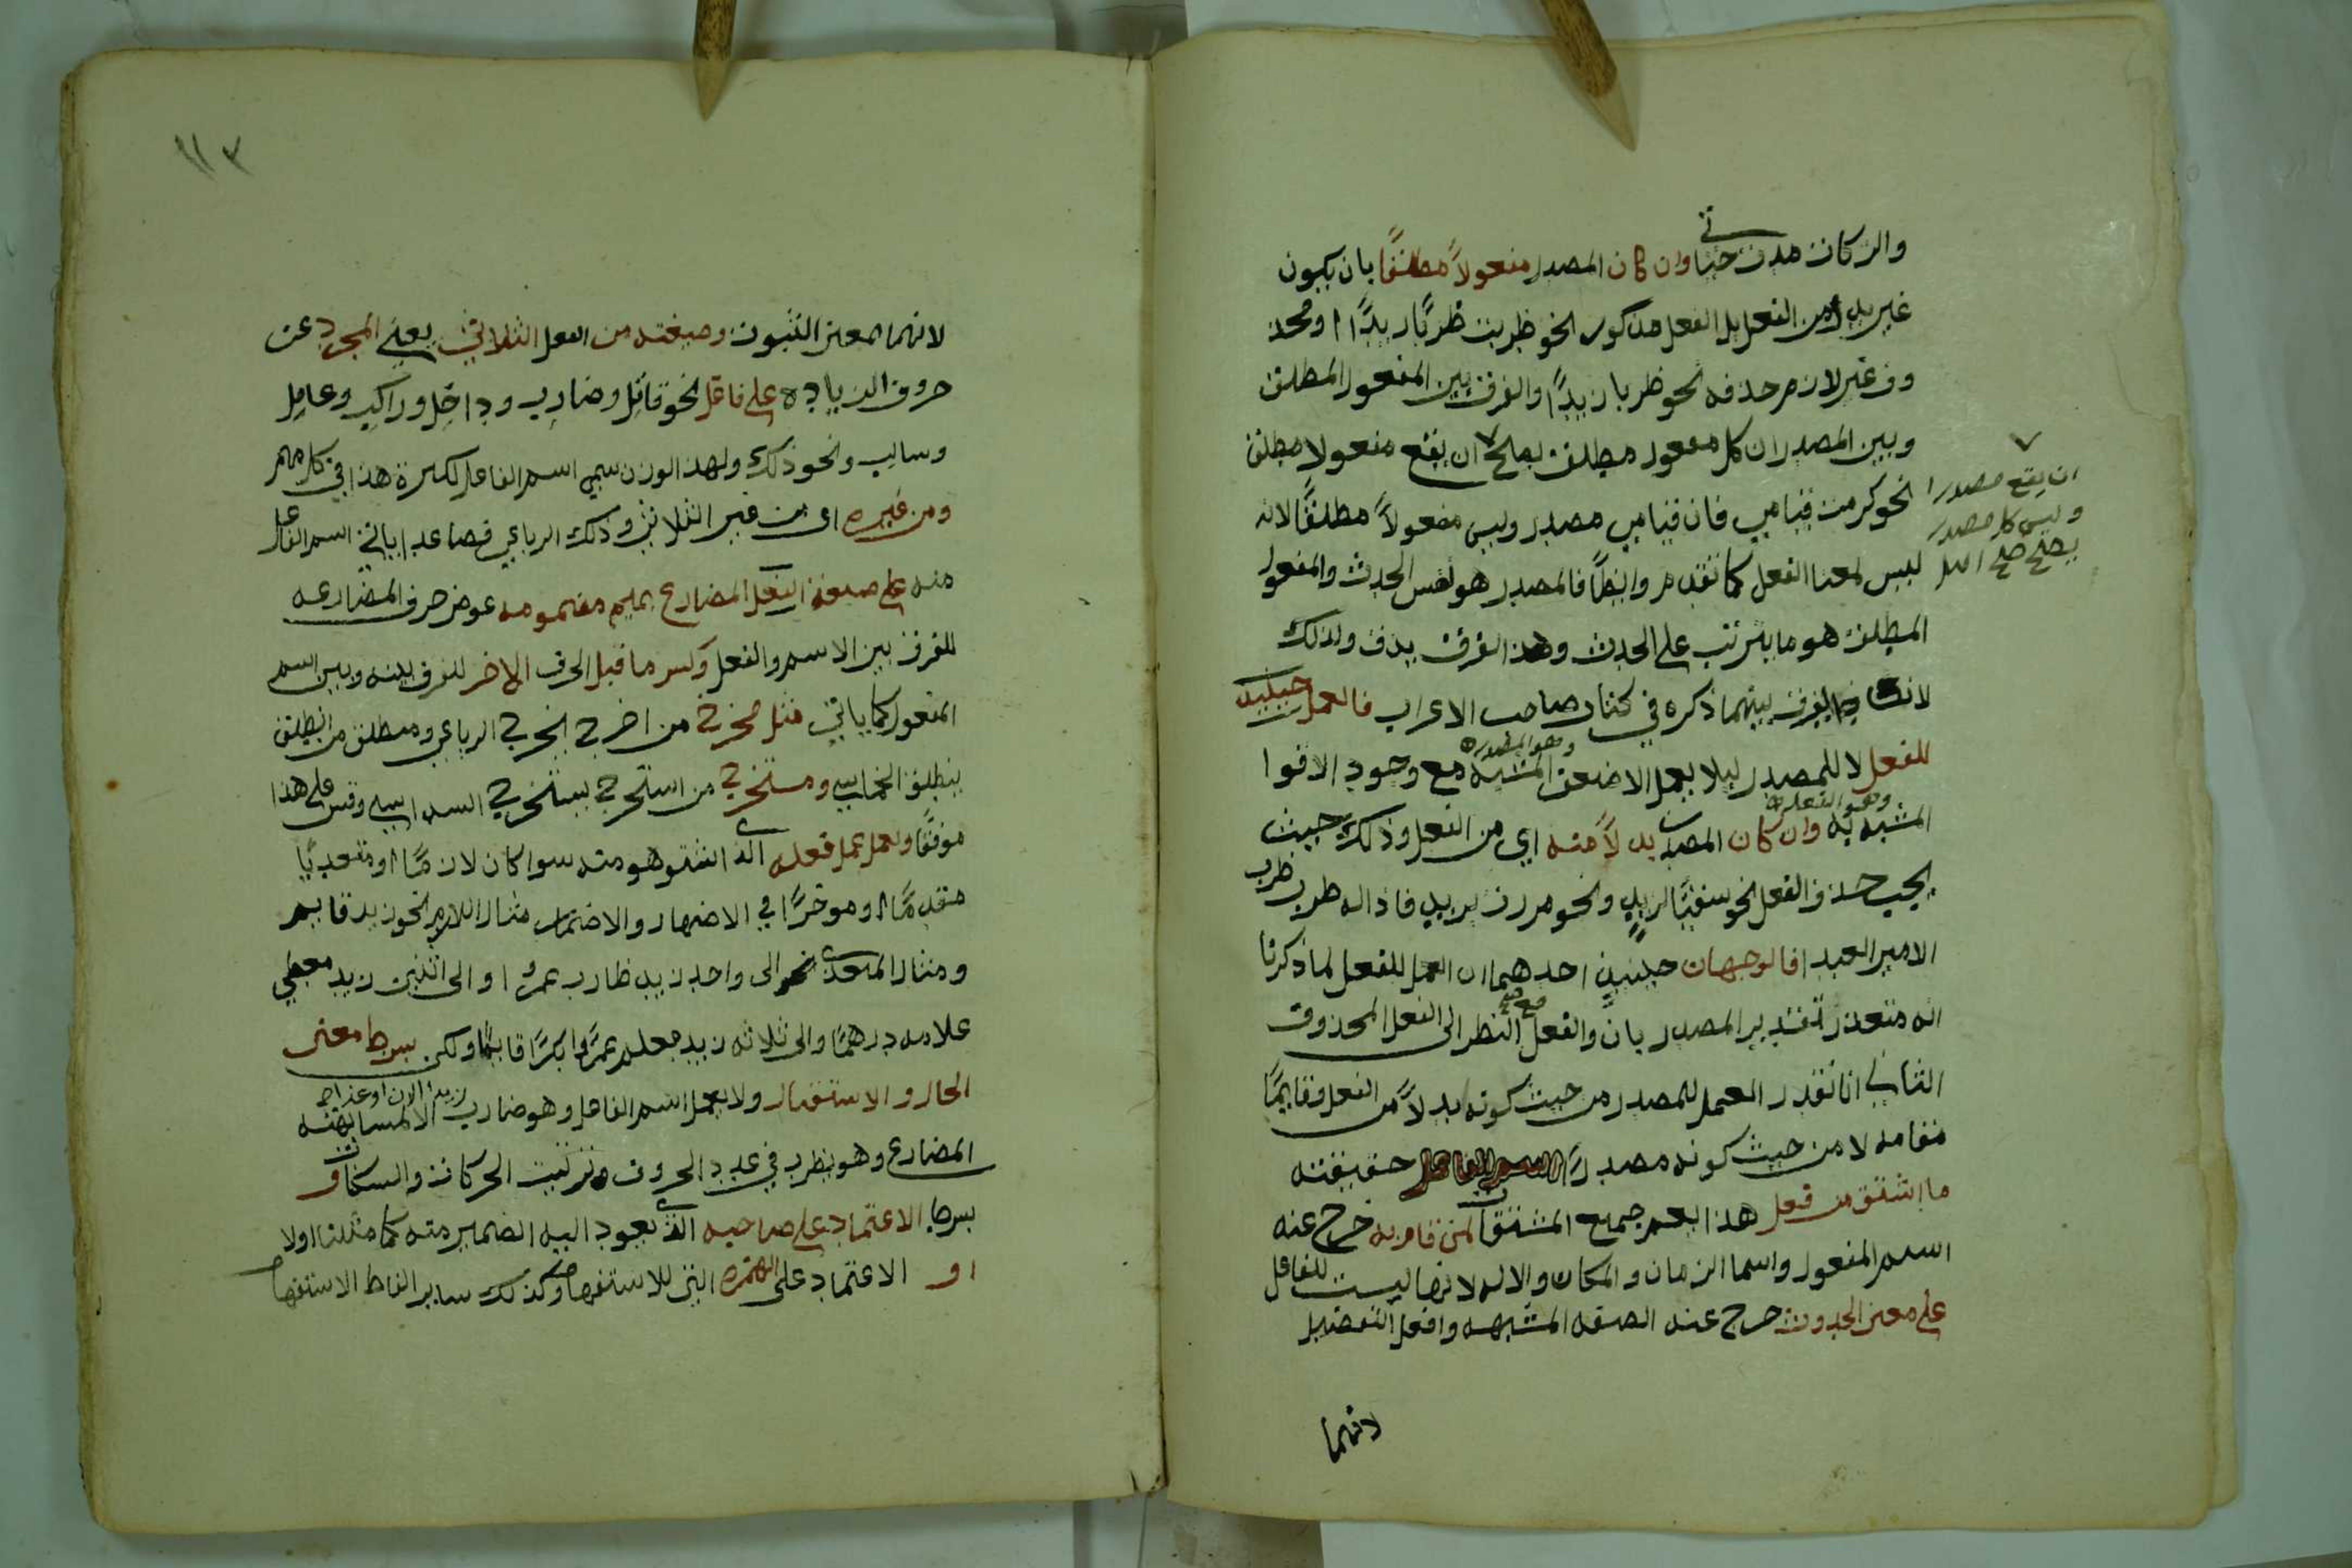 والزكات مدت حياتي وان كان المصدر مفعولاً مطلقًا بان يكون
غير بدل من الفعل بل الفعل مذكور نحو ظربت ظربًا زيدًا او محذ
وف غير لازم حذفه نحو ظربا زيدًا والفرق بين المفعول المطلق
وبين المصدر ان كل مفعول مطلق يصلح ان يقع مفعولا مطلق
ان يقع مصدرا
وليس كل مصدر
يصلح صح اصل
نحو كرمت قيامي فان قيامي مصدر وليس مفعولاً مطلقًا لانه
ليس لمعنا الفعل كما تقدم وايظًا فالمصدر هو نفس الحدث والمفعول
المطلق هو ما يترتب على الحدث وهذا الفرق يدق ولذلك
بينهما ذكره في كتاب صاحب الاعراب فالعمل حينئيذ
للفعل لا للمصدر ليلا يعمل الاضعف المشبه وهو المصدر مع وجود الاقوا
المشبه به وهو الفعل وان كان المصدر بدلاً منه اي من الفعل وذلك حيث
يجب حذف الفعل نحو سقيًا لزيدٍ ونحو مررت بزيد فاذا له ظرب ظرب
الامير العبد فالوجهان حينئيذٍ احدهما ان العمل للفعل لما ذكرنا
انه متعذر تقدير المصدر بان والفعل مع صح النظر الى الفعل المحذوف
الثاني ان تقدر العمل للمصدر من حيث كونه بدلاً من الفعل وقايمًا
مقامه لا من حيث كونه مصدرًا اسم الفاعل حقيقته
ما اشتق من فعل هذا يعم جميع المشتقات لمن قام به خرج عنه
اسم المفعول واسما الزمان والمكان والاله لانها ليست للفاعل
على معنى الحدوث خرج عنه الصفه المشبهه وافعل التفضيل
لانهما
١١٣
لانهما لمعنى الثبوت وصيغته من الفعل الثلاثي يعني المجرد عن
حروف الزياده على فاعل نحو قاتل وضارب وداخل وراكب وعامل
وسالب ونحو ذلك ولهذا الوزن سمي اسم الفاعل لكثرة هذا في كلامهم
ومن غيره اي من غير الثلاثي وذلك الرباعي فصاعدا ياتي اسم الفاعل
منه على صيغة الفعل المضارع بميم مضمومه عوض حرف المضارعه
للفرق بين الاسم والفعل وكسر ما قبل الحرف الاخر للفرق بينه وبين اسم
المفعول كما ياتي مثل مخرج من اخرج يخرج الرباعي ومنطلق من انطلق
ينطلق الخماسي ومستخرج من استخرج يستخرج السداسي وقس على هذا
موفقًا ويعمل عمل فعله الذي اشتق هو منه سوا كان لازمًا او متعديًا
مقدمًا او موخرًا في الاضهار والاضمار مثال اللازم نحو زيد قايم
ومثال المتعدي نحو الى واحد زيد ظارب عمرًا او الى اثنين زيد معطي
غلامه درهمًا والى ثلاثه زيد معلم عمرًا بكرًا قايمًا ولكن بشرط معنى
الحال والاستقبال ولا يعمل اسم الفاعل وهو ضارب زيدا الان او غدا صح الا لمشابهته
المضارع وهو يظرب في عدد الحروف وترتيب الحركات والسكنات و
بشرط الاعتماد على صاحبه الذي يعود اليه الضمير منه كما مثلنا اولا
او الاعتماد على الهمزه التي للاستفهام وكذلك ساير الفاظ الاستفهام